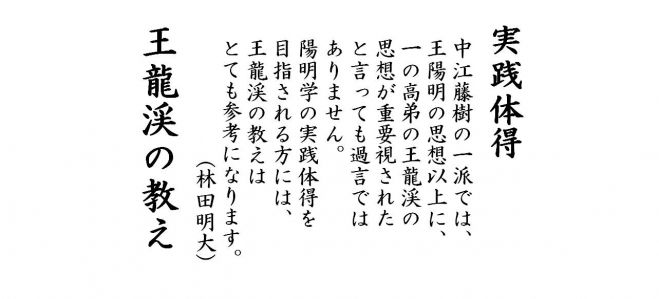 実践体得
中江藤樹の一派では、
王陽明の思想以上に、
一の高弟の王龍渓の
思想が重要視された
と言っても過言では
ありません。
陽明学の実践体得を
目指される方には、
王龍渓の教えは
とても参考になります。
（林田明大）
王龍渓の教え